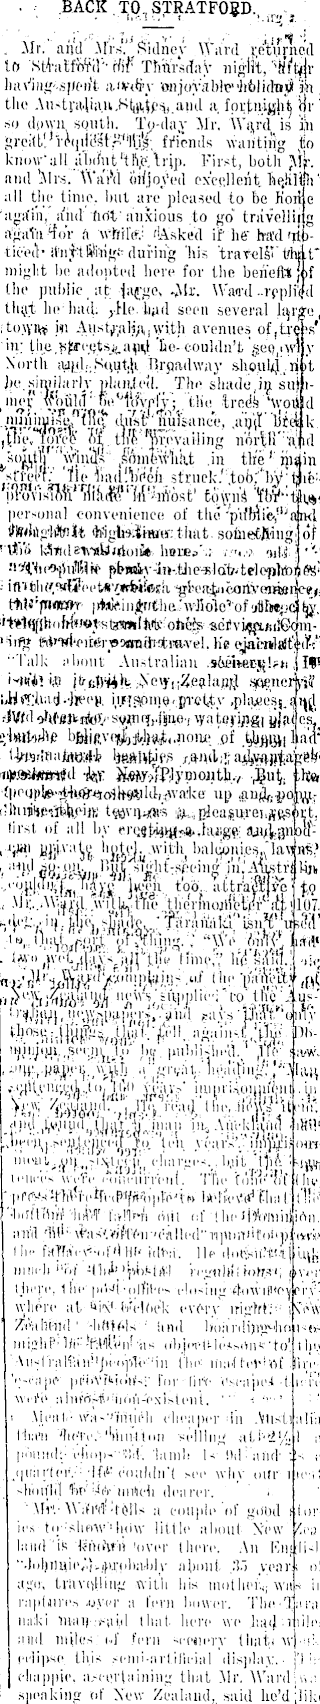 BACK TO STRATFORD.
Mr. and Mrs. Sidney Ward returned
to Stratford on Thursday night, after
having spent a very enjoyable holiday in
the Australian States, and a fortnight or
so down south. To-day Mr. Ward is in
great request, his friends wanting to
know all about the trip. First, both Mr.
and Mrs. Ward enjoyed excellent health
all the time, but are pleased to be home
again, and not anxious to go travelling
again for a while. Asked if he had no-
ticed anything during his travels that
might be adopted here for the benefit of
the public at large, Mr. Ward replied
that he had. He had seen several large
towns in Australia with avenues of trees
in the streets, and he couldn't see why
North and South Broadway should not
be similarly planted. The shade in sum-
mer would be lovely; the trees would
minimise the dust nuisance, and break
the force of the prevailing north and
south winds somewhat in the main
street. He had been struck, too, by the
provision made in most towns for the
personal convenience of the public, and
thought it high time that something of
the kind was done here.
in the streets were a great convenience,
the whole of the city
telephone at one's service. Com-
ing to scenery and travel, he ejaculated:
"Talk about Australian scenery! It
isn't in it with New Zealand scenery."
He had been in some pretty places, and
had been to some fine watering places,
but he believed that none of them had
the natural beauties and advantages
possessed by New Plymouth. But the
people there should wake up and popu-
larise their town as a pleasure resort,
first of all by erecting a large and mod-
ern private hotel, with balconies, lawns
and so on. But sight-seeing in Australia
couldn't have been too attractive to
Mr. Ward with the thermometer at 107
deg. in the shade. Taranaki isn't used
to that sort of thing. "We only had
two wet days all the time," he said.
Mr. Ward complains of the paucity of
New Zealand news supplied to the Aus-
tralian newspapers, and says that only
those things that tell against the Do-
minion seem to be published. He saw
one paper with a great heading, "Man
sentenced to 160 years imprisonment in
New Zealand." He read the news item,
and found that a man in Auckland had
been sentenced to ten years' imprison-
ment on sixteen charges, but the sen-
tences were concurrent. The tone of the
press there led people to believe that the
bottom had fallen out of the Dominion,
and he was often called upon to prove
the fallacy of the idea. He doesn't think
much of the postal regulations over
there, the post offices closing down every-
where at six o'clock every night. New
Zealand hotels and boardinghouses
might be taken as object lessons to the
Australian people in the matter of fire
escape provisions, for fire escapes there
were almost non-existent.
Meat was much cheaper in Australia
than here, mutton selling at 2½d a
pound, chops 3d, lamb 1s 9d and 2s a
quarter. He couldn't see why our meat
should be so much dearer.
Mr. Ward tells a couple of good stor-
ies to show how little about New Zea-
land is known over there. An English
"Johnnie," probably about 35 years of
age, travelling with his mother, was in
raptures over a fern bower. The Tara-
naki man said that here we had miles
and miles of fern scenery that would
eclipse this semi-artificial display. The
chappie, ascertaining that Mr. Ward was
speaking of New Zealand, said he'd like